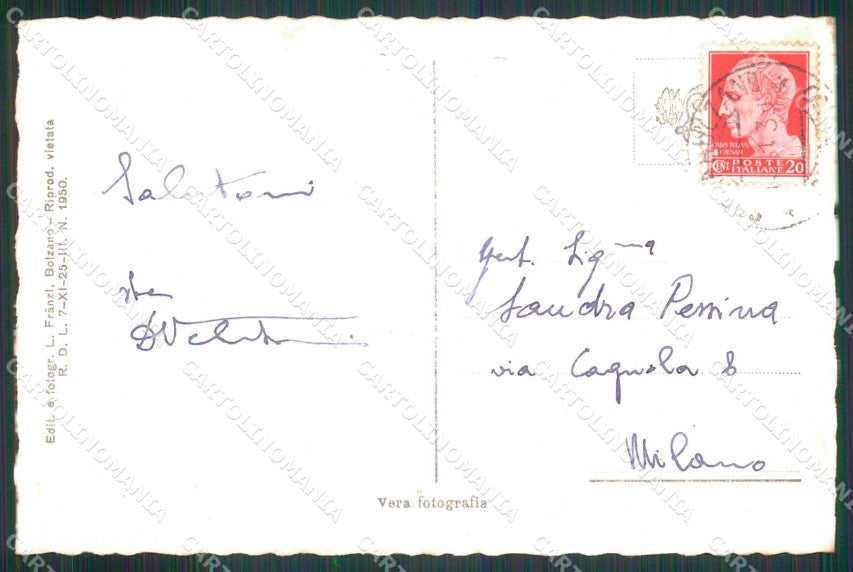 Edit. e fotogr. L. Fränzl, Bolzano - Riprod. vietata
R. D. L. 7-XI-25-III. N. 1950.
Salutoni
Gent. Sig.na
Sandra Pessina
via Cagnola 8
Milano
Vera fotografia
CAIVS IVLIVS
CAESAR
CENT POSTE ITALIANE 20
BOLZANO
CARTOLINOMANIA